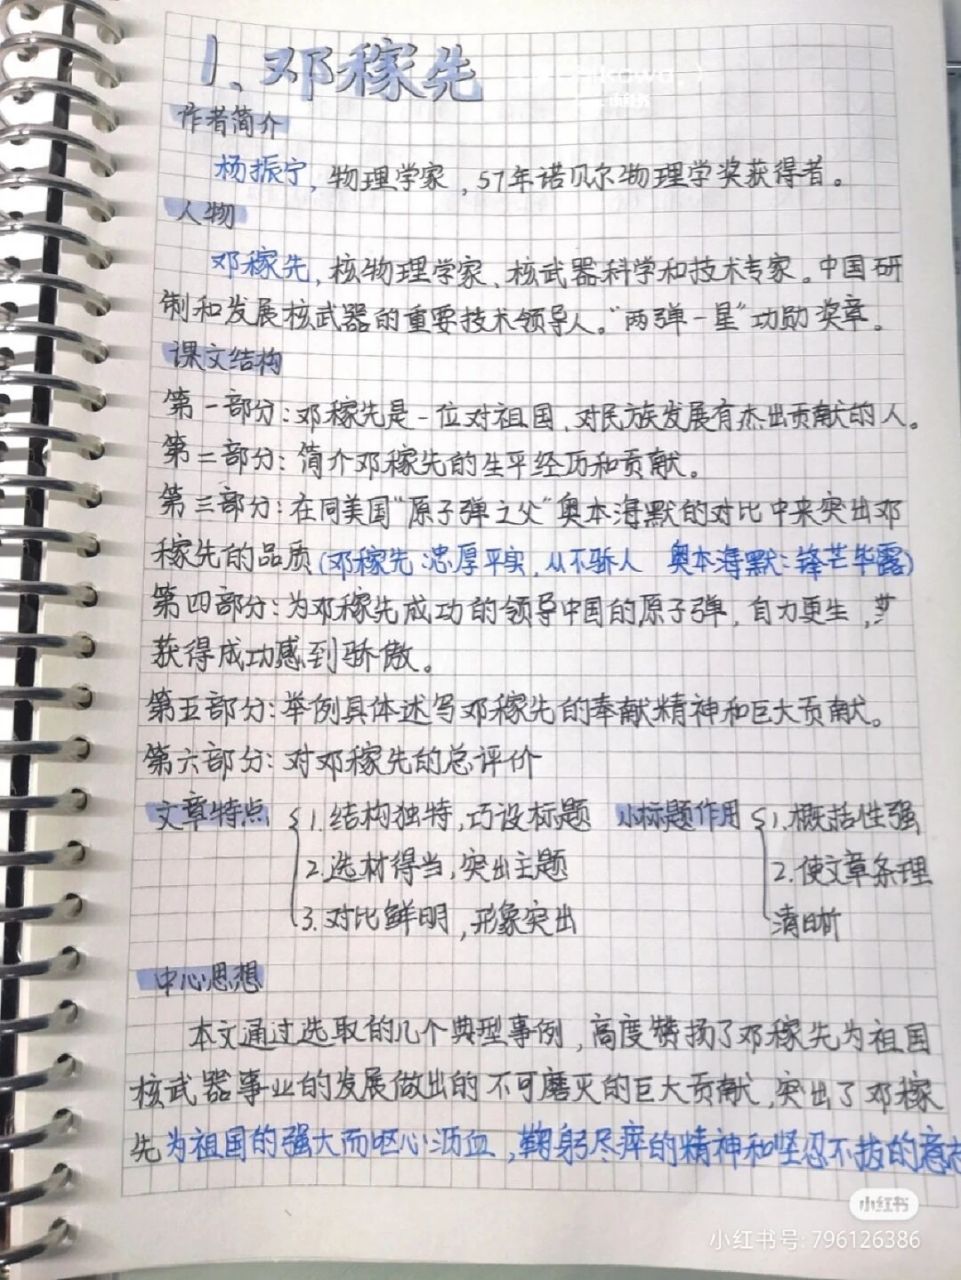 1、邓稼先
作者简介
杨振宁,物理学家,57年诺贝尔物理学奖获得者。
人物
邓稼先,核物理学家、核武器科学和技术专家。中国研
制和发展核武器的重要技术领导人。“两弹一星”功勋奖章。
课文结构
第一部分:邓稼先是一位对祖国、对民族发展有杰出贡献的人。
第二部分:简介邓稼先的生平经历和贡献。
第三部分:在同美国“原子弹之父”奥本海默的对比中来突出邓
稼先的品质(邓稼先:忠厚平实,从不骄人 奥本海默:锋芒毕露)
第四部分:为邓稼先成功的领导中国的原子弹,自力更生,
获得成功感到骄傲。
第五部分:举例具体述写邓稼先的奉献精神和巨大贡献。
第六部分:对邓稼先的总评价
文章特点 { 1.结构独特,巧设标题 小标题作用 { 1.概括性强
2.选材得当,突出主题 2.使文章条理
3.对比鲜明,形象突出 清晰
中心思想
本文通过选取的几个典型事例,高度赞扬了邓稼先为祖国
核武器事业的发展做出的不可磨灭的巨大贡献,突出了邓稼
先为祖国的强大而呕心沥血,鞠躬尽瘁的精神和坚忍不拔的意志
小红书
小红书号:796126386